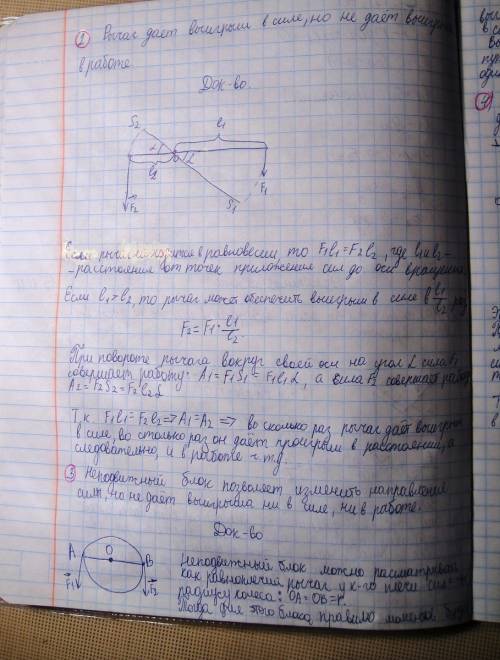 2 Рычаг дает выигрыш в силе, но не даёт выигрыш
в работе
Док-во.
S2
l1
α
α
l2
S1
F1
F2
Если рычаг находится в равновесии, то F1l1=F2l2, где l1 и l2-
-расстояния от точек приложения сил до оси вращения
Если l1>l2, то рычаг может обеспечить выигрыш в силе в l1/l2 раз
F2=F1·l1/l2
При повороте рычага вокруг своей оси на угол α сила F1
совершает работу: A1=F1S1=F1l1α, а сила F2 совершает работу
A2=F2S2=F2l2α
Т.к. F1l1=F2l2=>A1=A2=> во сколько раз рычаг даёт выигрыш
в силе, во столько раз он даёт проигрыш в расстоянии, а
следовательно, и в работе ч.т.д.
3 Неподвижный блок позволяет изменить направление
силы, но не дает выигрыша ни в силе, ни в работе.
Док-во
A
O
B
F1
F2
Неподвижный блок можно рассматривать
как равноплечий рычаг у к-го плечи сил
радиусу колеса: OA=OB=r.
Тогда для этого блока правило моментов
4